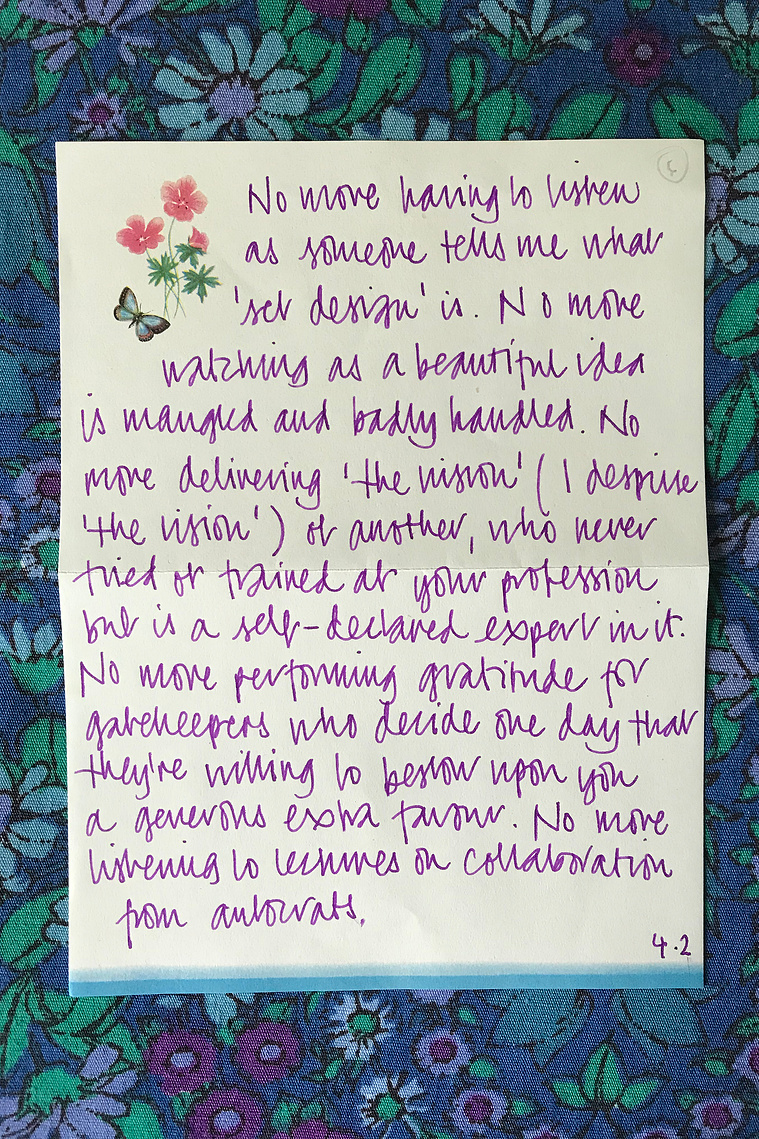 No more having to listen
as someone tells me what
'set design' is. No more
watching as a beautiful idea
is mangled and badly handled. No
more delivering 'the vision' (I despise
'the vision') of another, who never
tried or trained at your profession
but is a self-declared expert in it.
No more performing gratitude for
gatekeepers who decide one day that
they're willing to bestow upon you
a generous extra favour. No more
listening to lectures on collaboration
from autocrats.
4.2